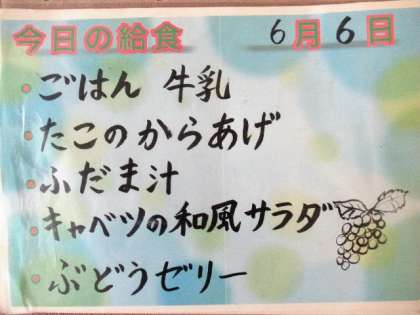 今日の給食 6月6日
・ごはん 牛乳
・たこのからあげ
・ふだま汁
・キャベツの和風サラダ
・ぶどうゼリー